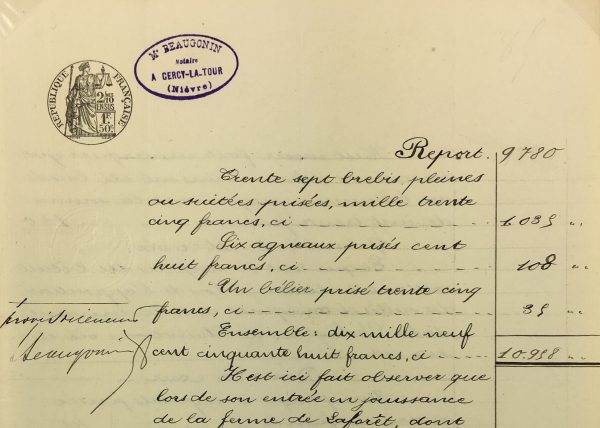 Mᵉ BEAUGONIN
Notaire
A CERCY-LA-TOUR
(Nièvre)
RÉPUBLIQUE FRANÇAISE
2/10
EN SUS
1F
50c
Report. 9780
Trente sept brebis pleines
ou suitées prisées, mille trente
cinq francs, ci 1.035 "
Six agneaux prisés cent
huit francs, ci 108 "
Un bélier prisé trente cinq
francs, ci 35 "
Ensemble: dix mille neuf
cent cinquante huit francs, ci 10.958 "
Il est ici fait observer que
lors de son entrée en jouissance
de la ferme de Laforêt, dont
Beaugonin